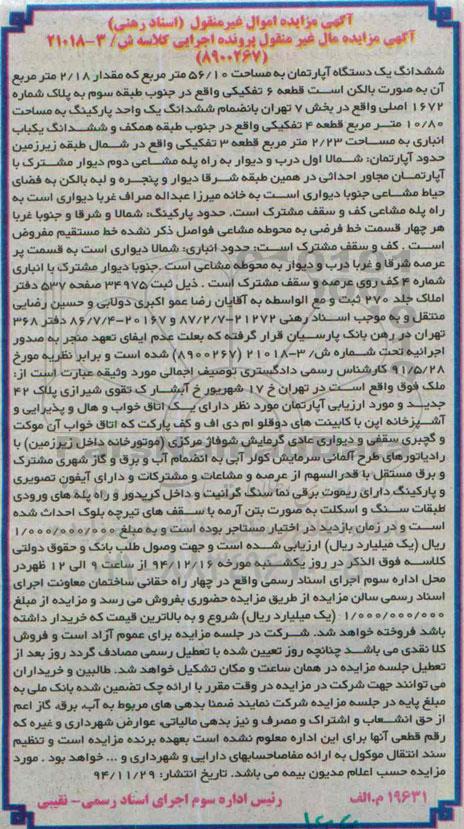 آگهی مزایده اموال غیرمنقول (اسناد رهنی)
آگهی مزایده مال غیر منقول پرونده اجرایی کلاسه ش/ ۳-۲۱۰۱۸
(۸۹۰۰۲۶۷)
ششدانگ یک دستگاه آپارتمان به مساحت ۵۶/۱۰ متر مربع که مقدار ۲/۱۸ متر مربع
آن به صورت بالکن است قطعه ۶ تفکیکی واقع در جنوب طبقه سوم به پلاک شماره
۱۶۷۲ اصلی واقع در بخش ۷ تهران بانضمام ششدانگ یک واحد پارکینگ به مساحت
۱۰/۸۰ متر مربع قطعه ۴ تفکیکی واقع در جنوب طبقه همکف و ششدانگ یکباب
انباری به مساحت ۲/۲۳ متر مربع قطعه ۳ تفکیکی واقع در شمال طبقه زیرزمین
حدود آپارتمان: شمالا اول درب و دیوار به راه پله مشاعی دوم دیوار مشترک با
آپارتمان مجاور احداثی در همین طبقه شرقا دیوار و پنجره و لبه بالکن به فضای
حیاط مشاعی جنوبا دیواری است به خانه میرزا عبداله صراف غربا دیواری است به
راه پله مشاعی کف و سقف مشترک است. حدود پارکینگ: شمالا و شرقا و جنوبا غربا
هر چهار قسمت خط فرضی به محوطه مشاعی فواصل ذکر نشده خط مستقیم مفروض
است . کف و سقف مشترک است: حدود انباری: شمالا دیواری است به قسمت پر
عرصه شرقا و غربا درب و دیوار به محوطه مشاعی است .جنوبا دیوار مشترک با انباری
شماره ۴ کف روی عرصه و سقف مشترک است . ذیل ثبت ۳۴۹۷۵ صفحه ۵۳۷ دفتر
املاک جلد ۲۷۰ ثبت و مع الواسطه به آقایان رضا عمو اکبری دولابی و حسین رضایی
منتقل و به موجب اسناد رهنی ۲۱۲۷۲-۸۷/۲/۷ و ۲۰۱۶۷-۸۶/۷/۴ دفتر ۳۶۸
تهران در رهن بانک پارسیان قرار گرفته که بعلت عدم ایفای تعهد منجر به صدور
اجرائیه تحت شماره ش/ ۳-۲۱۰۱۸ (۸۹۰۰۲۶۷) شده است و برابر نظریه مورخ
۹۱/۵/۲۸ کارشناس رسمی دادگستری توصیف اجمالی مورد وثیقه عبارت است از:
ملک فوق واقع است در تهران خ ۱۷ شهریور خ آبشار ک تقوی شیرازی پلاک ۴۲
جدید و مورد ارزیابی آپارتمان مورد نظر دارای یک اتاق خواب و هال و پذیرایی و
آشپزخانه اپن با کابینت های دوقلو ام دی اف و کف پارکت که اتاق خواب آن موکت
و گچبری سقفی و دیواری عادی گرمایش شوفاژ مرکزی (موتورخانه داخل زیرزمین) با
رادیاتورهای طرح آلمانی سرمایش کولر آبی به انضمام آب و برق و گاز شهری مشترک
و برق مستقل با قدرالسهم از عرصه و مشاعات و مشترکات و دارای آیفون تصویری
و پارکینگ دارای ریموت برقی نما سنگ گرانیت و داخل کریدور و راه پله های ورودی
طبقات سنگ و اسکلت به صورت بتن آرمه با سقف های تیرچه بلوک احداث شده
است و در زمان بازدید در اختیار مستاجر بوده است و به مبلغ ۱/۰۰۰/۰۰۰/۰۰۰
ریال (یک میلیارد ریال) ارزیابی شده است و جهت وصول طلب بانک و حقوق دولتی
کلاسه فوق الذکر در روز یکشنبه مورخه ۹۴/۱۲/۱۶ از ساعت ۹ الی ۱۲ ظهر در
محل اداره سوم اجرای اسناد رسمی واقع در چهار راه حقانی ساختمان معاونت اجرای
اسناد رسمی سالن مزایده از طریق مزایده حضوری بفروش می رسد و مزایده از مبلغ
۱/۰۰۰/۰۰۰/۰۰۰ (یک میلیارد ریال) شروع و به بالاترین قیمت که خریدار داشته
باشد فروخته خواهد شد. شرکت در جلسه مزایده برای عموم آزاد است و فروش
کلا نقدی می باشد چنانچه روز تعیین شده با تعطیل رسمی مصادف گردد روز بعد از
تعطیل جلسه مزایده در همان ساعت و مکان تشکیل خواهد شد. طالبین و خریداران
می توانند جهت شرکت در مزایده در وقت مقرر با ارائه چک تضمین شده بانک ملی به
مبلغ پایه در جلسه مزایده شرکت نمایند ضمنا بدهی های مربوط به آب، برق، گاز اعم
از حق انشعاب و اشتراک و مصرف و نیز بدهی مالیاتی، عوارض شهرداری و غیره که
رقم قطعی آنها برای این اداره معلوم نشده است بعهده برنده مزایده است و تنظیم
سند انتقال موکول به ارائه مفاصاحسابهای دارایی و شهرداری و ... خواهد بود . مورد
مزایده حسب اعلام مدیون بیمه می باشد. تاریخ انتشار: ۹۴/۱۱/۲۹
۱۹۶۳۱ م.الف رئیس اداره سوم اجرای اسناد رسمی- نقیبی